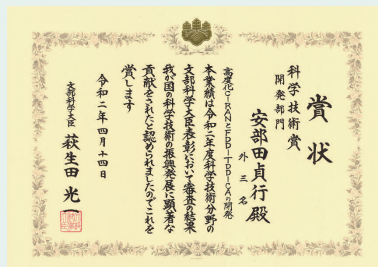 賞状
科学技術賞
開発部門
安部田貞行殿
外三名
高度化C-RANとFDD-TDDICAの開発
本業績は令和二年度科学技術分野の
文部科学大臣表彰において審査の結果
我が国の科学技術の振興発展に顕著な
貢献をされたと認められましたのでこれを
賞します
令和二年四月十四日
文部科学大臣 萩生田光一